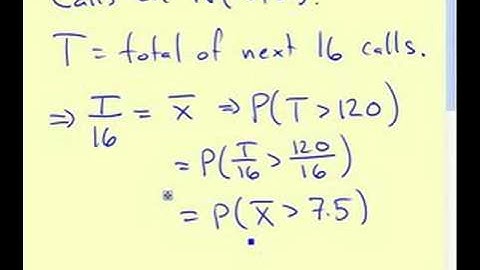 T = total of next 16 calls.
⇒ T/16 = X̄ ⇒ P(T > 120)
= P(T/16 > 120/16)
= P(X̄ > 7.5)